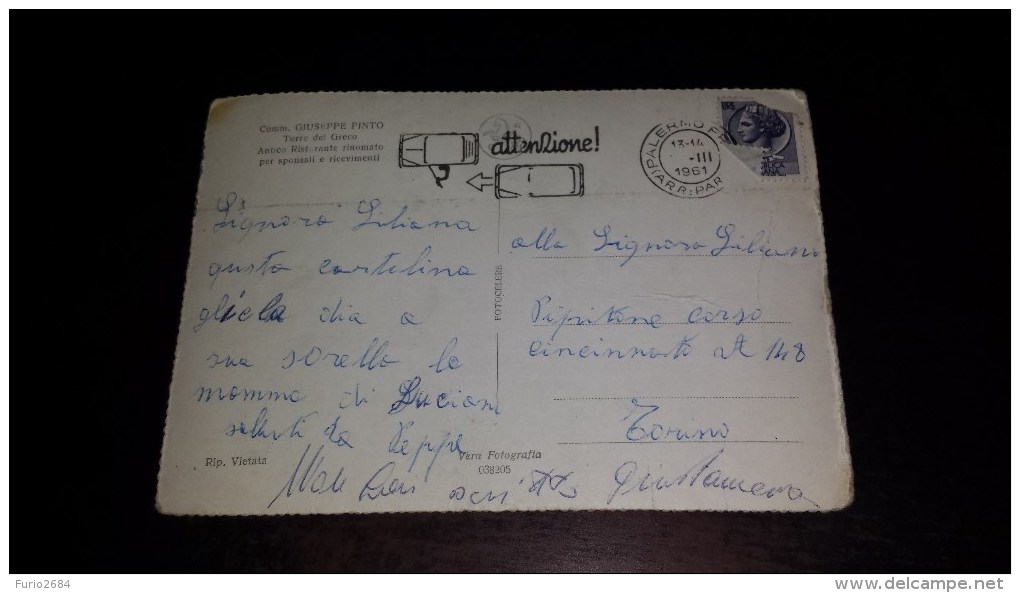 Comm. GIUSEPPE PINTO
Torre del Greco
Antico Ristorante rinomato
per sponsali e ricevimenti
attenzione!
PALERMO
13-14
-III
1961
(ARR. PAR
Signora Liliana
questa cartolina
gliela dia a
sua sorella la
mamma di Lucian
saluti da Peppe
FOTOCELERE
alla Signora Liliana
Pipitone corso
cincinnato 148
Torino
Rip. Vietata
Vera Fotografia
038205
Furio2684
www.delcampe.net